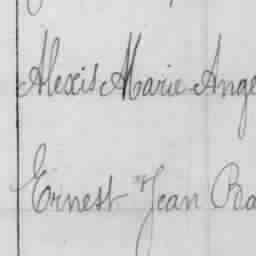 Alexis Marie Ange
Ernest Jean Ra